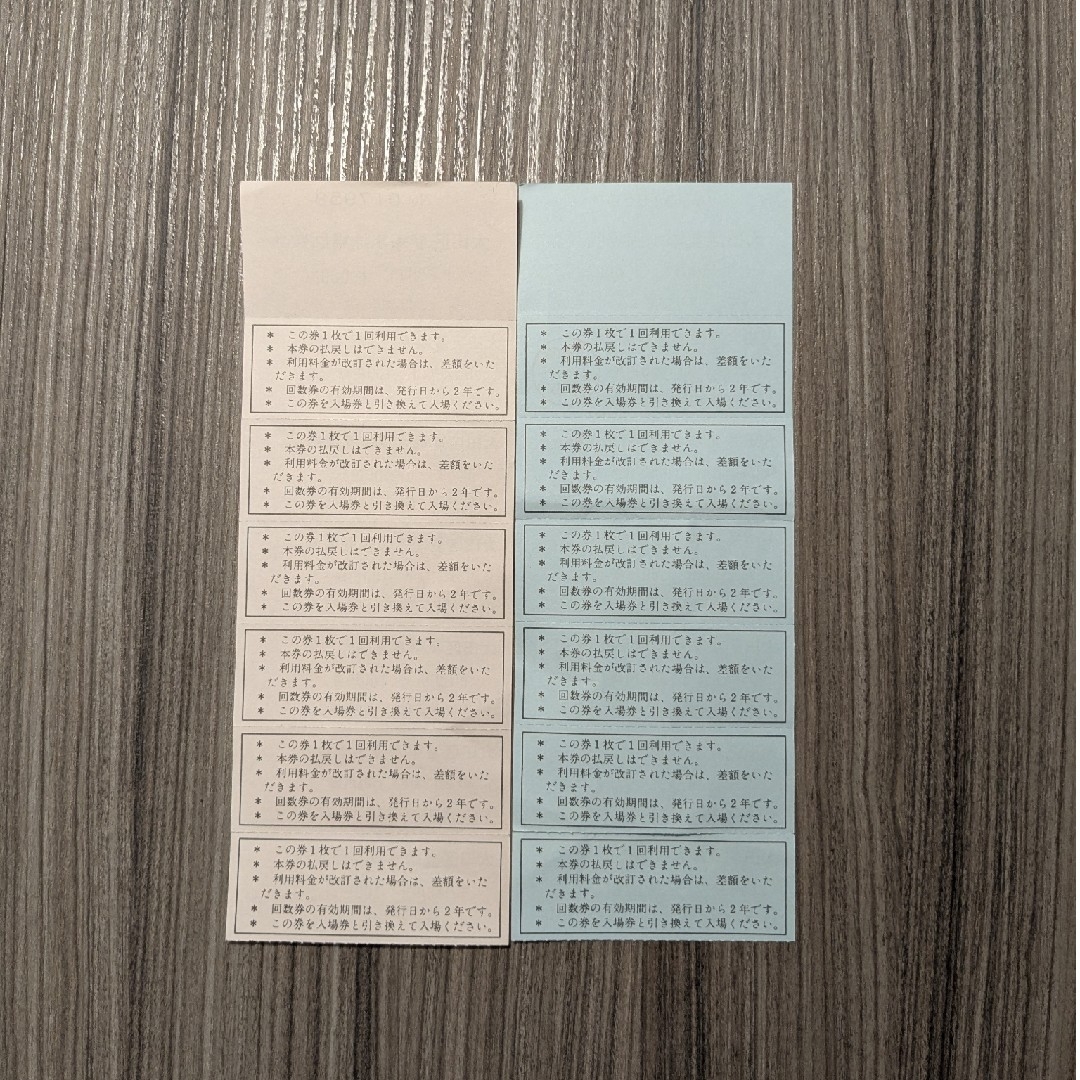 ＊ この券１枚で１回利用できます。
＊ 本券の払戻しはできません。
＊ 利用料金が改訂された場合は、差額をいた
だきます。
＊ 回数券の有効期間は、発行日から２年です。
＊ この券を入場券と引き換えて入場ください。
＊ この券１枚で１回利用できます。
＊ 本券の払戻しはできません。
＊ 利用料金が改訂された場合は、差額をいた
だきます。
＊ 回数券の有効期間は、発行日から２年です。
＊ この券を入場券と引き換えて入場ください。
＊ この券１枚で１回利用できます。
＊ 本券の払戻しはできません。
＊ 利用料金が改訂された場合は、差額をいた
だきます。
＊ 回数券の有効期間は、発行日から２年です。
＊ この券を入場券と引き換えて入場ください。
＊ この券１枚で１回利用できます。
＊ 本券の払戻しはできません。
＊ 利用料金が改訂された場合は、差額をいた
だきます。
＊ 回数券の有効期間は、発行日から２年です。
＊ この券を入場券と引き換えて入場ください。
＊ この券１枚で１回利用できます。
＊ 本券の払戻しはできません。
＊ 利用料金が改訂された場合は、差額をいた
だきます。
＊ 回数券の有効期間は、発行日から２年です。
＊ この券を入場券と引き換えて入場ください。
＊ この券１枚で１回利用できます。
＊ 本券の払戻しはできません。
＊ 利用料金が改訂された場合は、差額をいた
だきます。
＊ 回数券の有効期間は、発行日から２年です。
＊ この券を入場券と引き換えて入場ください。
＊ この券１枚で１回利用できます。
＊ 本券の払戻しはできません。
＊ 利用料金が改訂された場合は、差額をいた
だきます。
＊ 回数券の有効期間は、発行日から２年です。
＊ この券を入場券と引き換えて入場ください。
＊ この券１枚で１回利用できます。
＊ 本券の払戻しはできません。
＊ 利用料金が改訂された場合は、差額をいた
だきます。
＊ 回数券の有効期間は、発行日から２年です。
＊ この券を入場券と引き換えて入場ください。
＊ この券１枚で１回利用できます。
＊ 本券の払戻しはできません。
＊ 利用料金が改訂された場合は、差額をいた
だきます。
＊ 回数券の有効期間は、発行日から２年です。
＊ この券を入場券と引き換えて入場ください。
＊ この券１枚で１回利用できます。
＊ 本券の払戻しはできません。
＊ 利用料金が改訂された場合は、差額をいた
だきます。
＊ 回数券の有効期間は、発行日から２年です。
＊ この券を入場券と引き換えて入場ください。
＊ この券１枚で１回利用できます。
＊ 本券の払戻しはできません。
＊ 利用料金が改訂された場合は、差額をいた
だきます。
＊ 回数券の有効期間は、発行日から２年です。
＊ この券を入場券と引き換えて入場ください。
＊ この券１枚で１回利用できます。
＊ 本券の払戻しはできません。
＊ 利用料金が改訂された場合は、差額をいた
だきます。
＊ 回数券の有効期間は、発行日から２年です。
＊ この券を入場券と引き換えて入場ください。